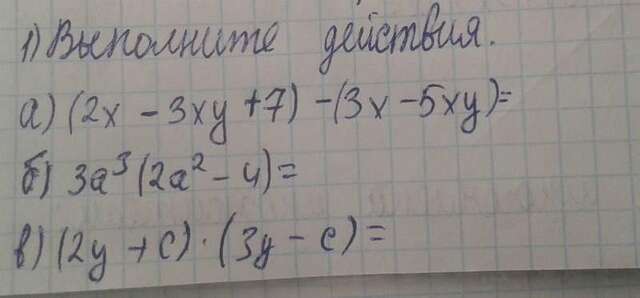 1) Выполните действия.
а) (2x - 3xy + 7) - (3x - 5xy) =
б) 3a³(2a² - 4) =
в) (2y + c) · (3y - c) =